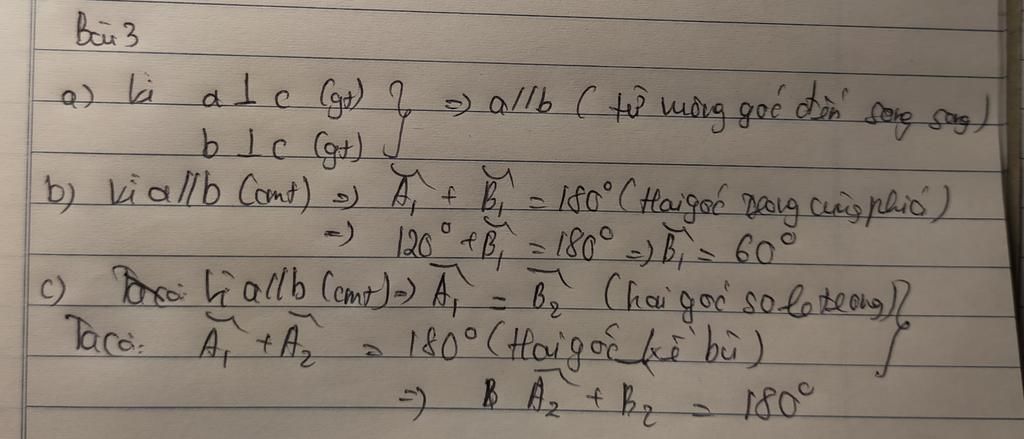 Bài 3
a) Vì a ⊥ c (gt) } => a//b (từ vuông góc đến song song)
b ⊥ c (gt)
b) Vì a//b (cmt) => Â₁ + B̂₁ = 180° (Hai góc trong cùng phía)
=> 120° + B̂₁ = 180° => B̂₁ = 60°
c) Vì a//b (cmt) => Â₁ = B̂₂ (hai góc so le trong) }
Ta có: Â₁ + Â₂ = 180° (Hai góc kề bù)
=> Â₂ + B₂ = 180°